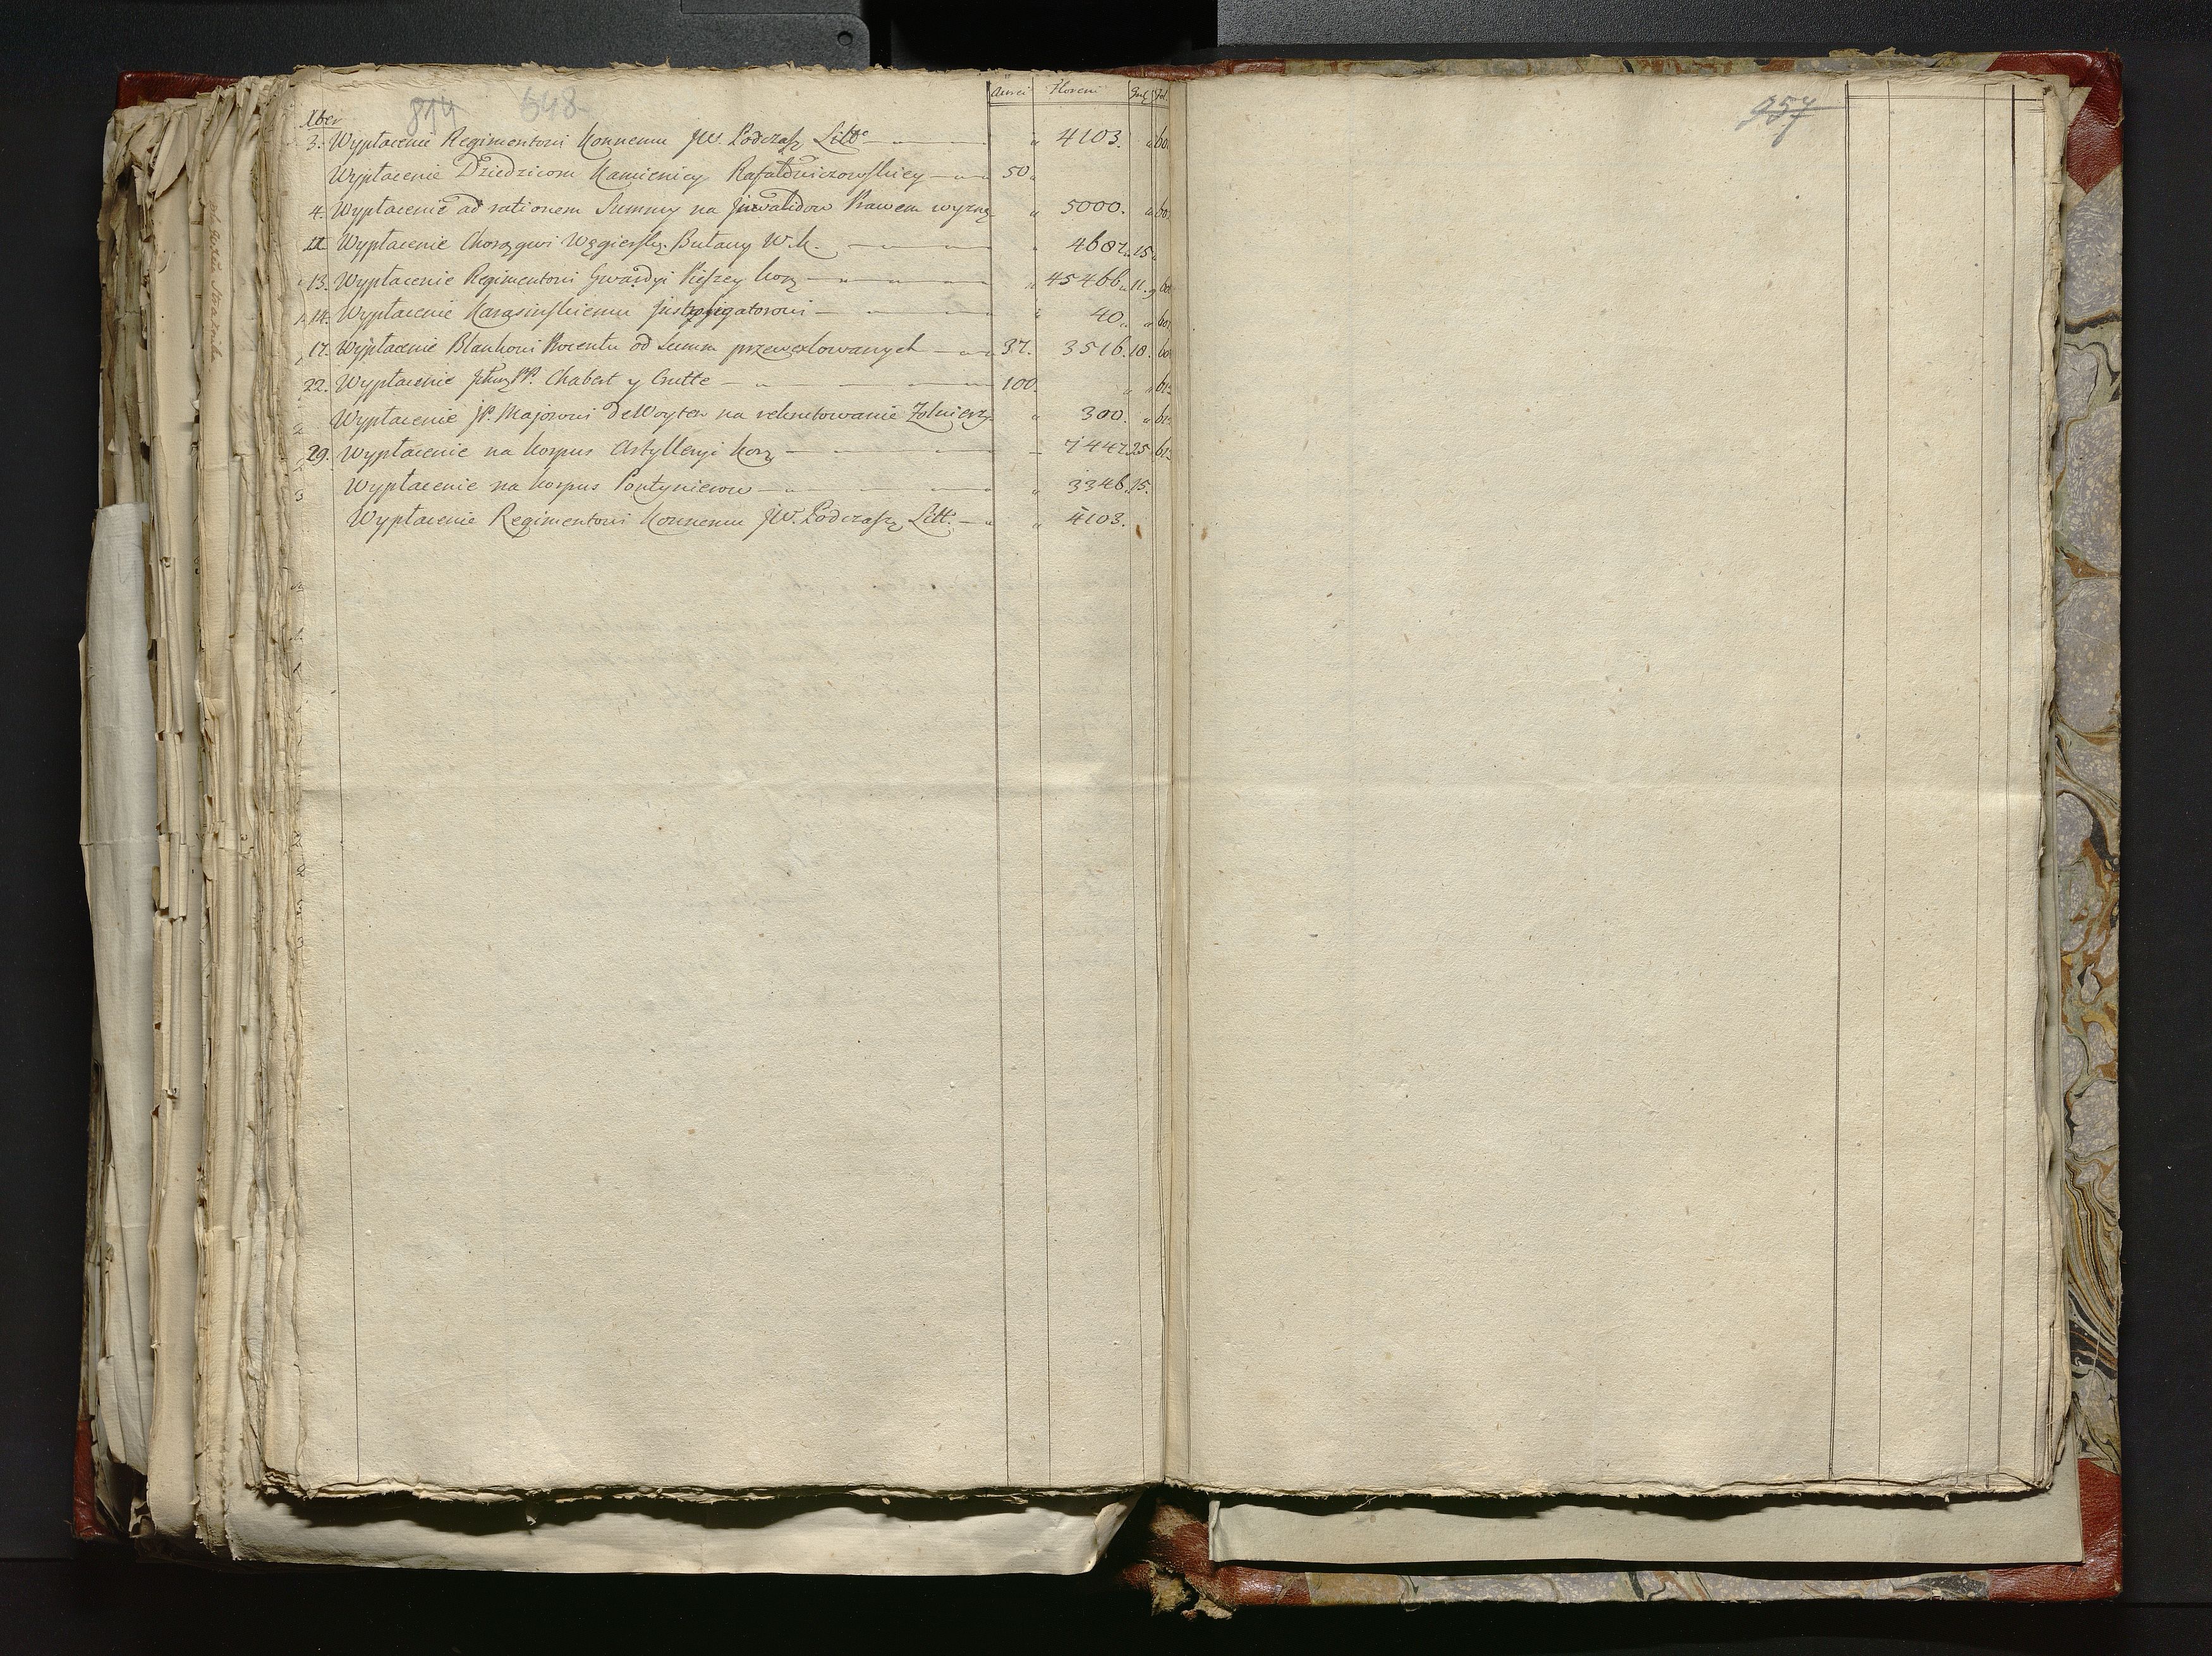 814 548
Aurei Floreni Gr. Fol.
Xber
3. Wypłacenie Regimentowi Konnemu JW. Podczasz Litt. " 4103. " 60
Wypłacenie Dziedzicom Kamienicy 50 "
4. Wypłacenie ad rationem Summy na Jnwalidow Prawem wyzną " 5000. " 60
11 Wypłacenie Chorągwi Węgierskiey Buławy W. K. " 4687 " 15 "
13. Wypłacenie Regimentowi Gwardyi Pieszey Kor. " 45466 " 11. 9 60
14. Wypłacenie Karasinskiemu Jnstygatorowi " 40 " " 60
17. Wypłacenie Blankowi Procentu od Summ przewexlowanych 37. 3516. 18. 60
22. Wypłacenie PP. Chabert y Crutte 100. " " 61
Wypłacenie JP. Majorowi DeWoyten na rekrutowanie Zołnierzy " 300. " 61
29. Wypłacenie na korpus Artylleryi Kor. 7447 25 61
Wypłacenie na korpus Pontynierow " 3346. 15.
Wypłacenie Regimentowi Konnemu JW. Podczasz Litt. " 4103.
957